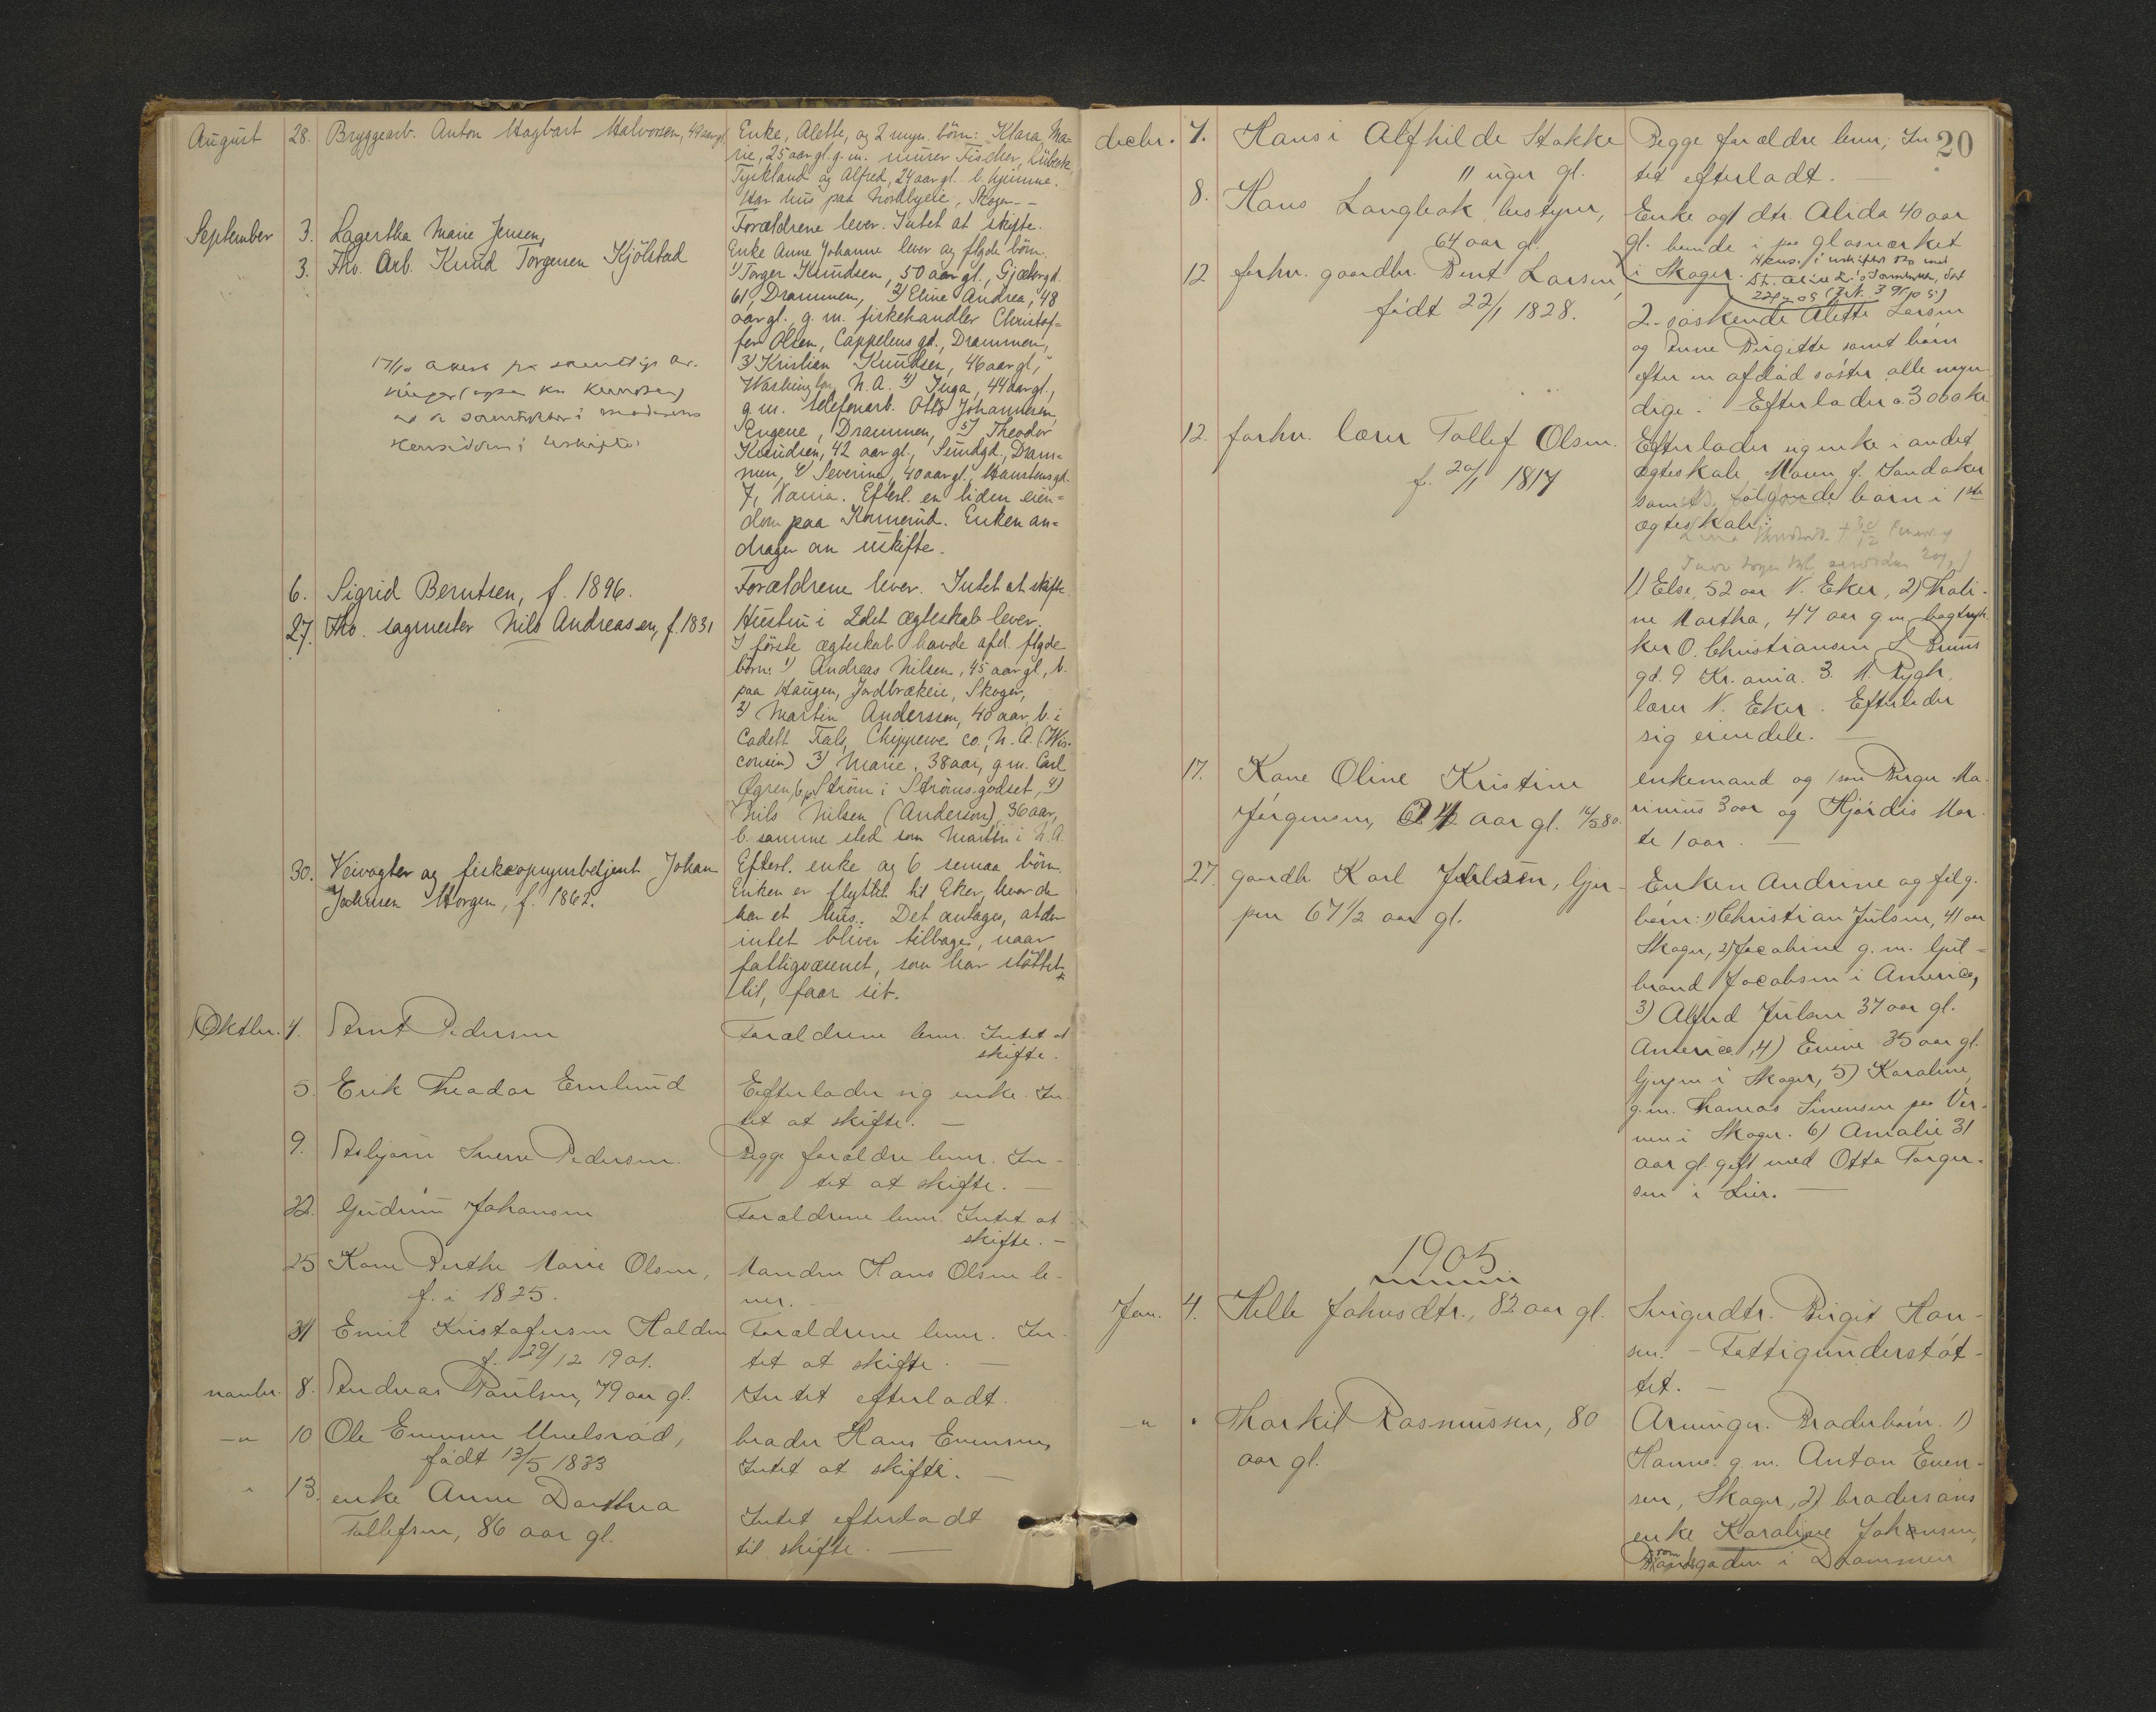 August 28. Bryggearb. Anton Hagbart Halvorsen, 49 aar gl.
Enke, Alette, og 2 myn. börn: Klara Ma-
rie, 25 aar gl. g. m. murer Fischer, Lübeck,
Tyskland og Alfred, 24 aar gl. b. hjemme.
Har hus paa Nordbyeie, Skoger. -
September 3. Lagertha Marie Jensen,
Forældrene lever. Intet at skifte.
3. Fho. Arb. Knud Torgersen Kjölstad
Enke Anne Johanne lever og flgde börn.
1) Torger Knudsen, 50 aar gl., Gjætergd.
61, Drammen, 2) Eline Andrea, 48
aar gl., g. m. fiskehandler Christof-
fer Olsen, Cappelens gd., Drammen,
3) Kristian Knudsen, 46 aar gl.,
Washington N. A. 4) Inga, 44 aar gl.,
g. m. telefonarb. Otto Johannesen,
Engene, Drammen, 5) Theodor
Knudsen, 42 aar gl., Sundgd., Dram-
men, 6) Severine, 40 aar gl., Haustensgd.
7, Xania. Efterl. en liden eien-
dom paa Konnerud. Enken an-
drager om uskifte.
17/10
samtykker i moderens
hensidden i uskifte
6. Sigrid Berntsen, f. 1896.
Forældrene lever. Intet at skifte.
27. Fho. sagmester Nils Andreasen, f. 1831
Hustru i 2det ægteskab lever.
I förste ægteskab havde afd. flgde
börn: 1) Andreas Nilsen, 45 aar gl., b.
paa Haugen, Jordbrækeie, Skoger,
2) Martin Anderssen, 40 aar, b. i
Cadelt Fals, Chippewe co., N. A. (Wis-
consin) 3) Marie, 38 aar, g. m. Carl
Øgren, b. p. Ström i Strömsgodset, 4)
Nils Nilsen (Anderson), 36 aar,
b. samme sted som Martin i N. A.
30. Veivogter og fiskeopsynsbetjent Johan
Johnsen Horgen, f. 1862.
Efterl. enke og 6 semaa börn.
Enken er flyttet til Eker, hvor de
har et hus. Det antages, at der
intet bliver tilbage, naar
fattigvæsenet, som har støttet
til, faar sit.
Oktbr. 4. Arnt Pedersen
Forældrene lever. Intet at
skifte.
5. Erik Theodor Ernlund
Efterlader sig enke. In-
tet at skifte. —
9. Asbjørn Sverre Pedersen.
Begge forældre lever. In-
tet at skifte. —
22. Gudrun Johansen
Forældrene lever. Intet at
skifte. -
25 Kone Berthe Marie Olsen,
f. i 1825.
Manden Hans Olsen le-
ver. -
31 Emil Kristofersen Holden
f. 29/12 1901.
Forældrene lever. In-
tet at skifte. —
novbr. 8. Andreas Paulsen, 79 aar gl.
Intet efterladt.
-"- 10 Ole Evensen
født 13/5 1833
broder Hans Evensen,
Intet at skifte. —
" 13. enke Anne Dorthea
Tollefsen, 86 aar gl.
Intet efterladt
til skifte. —
20
decbr. 7. Hansi Alfhilde Stokke
11 uger gl.
Begge forældre lever, In
tet efterladt. —
8. Hans Langbak, bestyrer,
64 aar gl.
Enke og 1 dtr. Alida 40 aar
gl. boende i paa glasværket
i Skoger.
12 forhv. gaardbr. Bent Larsen,
født 22/1 1828.
2 søskende Alette Larsen
og Anne Birgitte samt børn
efter en afdød søster, alle myn-
dige. Efterlader c. 3000 kr
12. forhv. lærer Tollef Olsen.
f. 20/1 1817
Efterlader sig enke i andet
ægteskab Maren f. Sandaker
samt følgende børn i 1ste
ægteskab:
1) Else, 52 aar N. Eker, 2) Thali-
ne Martha, 47 aar g. m. bogtryk-
ker O. Christiansen, L. Bruns
gd. 9 Kr.ania. 3. M. Rygh,
lærer N. Eker. Efterlader
sig eiendele. —
17. Kone Oline Kristine
Jørgensen, 24 1/2 aar gl. 16/5 80.
enkemand og 1 søn Birger Ma-
rinius 3 aar og Hjørdis Mar-
te 1 aar. —
27. gaardb. Karl Julsen, Gjer-
pen 67 1/2 aar gl.
Enken Andrine og følg.
børn: 1) Christian Julsen, 41 aar
Skoger, 2) Jacobine g. m. Gul-
brand Jacobsen i America,
3) Alfred Julsen 37 aar gl.
America, 4) Emine 35 aar gl.
Gjerpen i Skoger, 5) Karoline,
g. m. Thomas Simensen paa Ver-
nen i Skoger. 6) Amalie 31
aar gl. gift med Otto Torger-
sen i Lier. —
1905
Jan. 4. Helle Johnsdtr., 82 aar gl.
Svigerdtr. Birgit Han-
sen. - Fattigunderstøt-
tet. —
-"- " Thorkil Rasmussen, 80
aar gl.
Arvinger. Broderbørn. 1)
Hanne g. m. Anton Even-
sen, Skoger, 2) brodersøns
enke Karoline Johansen,
i Drammen